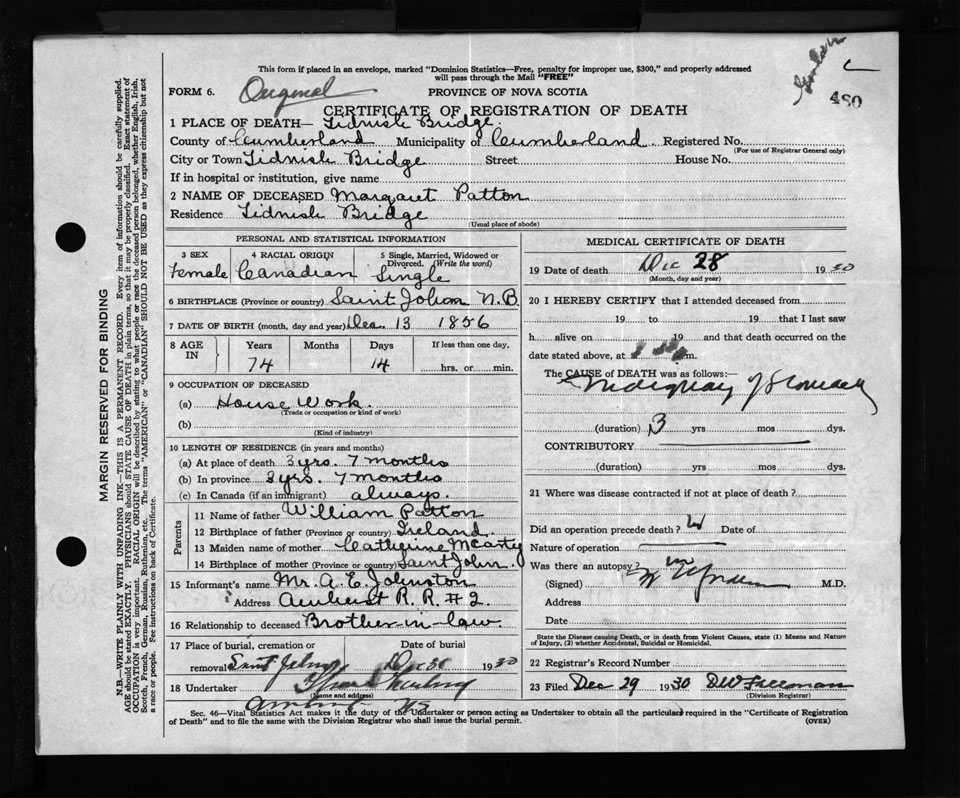 This form if placed in an envelope, marked "Dominion Statistics—Free, penalty for improper use, $300," and properly addressed
will pass through the Mail "FREE"
480
FORM 6. Original PROVINCE OF NOVA SCOTIA
CERTIFICATE OF REGISTRATION OF DEATH
1 PLACE OF DEATH— Tidnish Bridge.
County of Cumberland Municipality of Cumberland Registered No.
(For use of Registrar General only)
City or Town Tidnish Bridge Street House No.
If in hospital or institution, give name
2 NAME OF DECEASED Margaret Patton
Residence Tidnish Bridge
(Usual place of abode)
PERSONAL AND STATISTICAL INFORMATION
3 SEX 4 RACIAL ORIGIN 5 Single, Married, Widowed or Divorced. (Write the word)
Female Canadian Single
6 BIRTHPLACE (Province or country) Saint John N.B
7 DATE OF BIRTH (month, day and year) Dec. 13 1856
8 AGE IN Years Months Days If less than one day,
74 14 hrs. or min.
9 OCCUPATION OF DECEASED
(a) House Work.
(Trade or occupation or kind of work)
(b)
(Kind of industry)
10 LENGTH OF RESIDENCE (in years and months)
(a) At place of death 3 yrs. 7 months
(b) In province 3 yrs. 7 months
(c) In Canada (if an immigrant) always.
Parents
11 Name of father William Patton
12 Birthplace of father (Province or country) Ireland.
13 Maiden name of mother Catherine McCarty
14 Birthplace of mother (Province or country) Saint John.
15 Informant's name Mr. A. E. Johnston
Address Amherst R. R. # 2.
16 Relationship to deceased Brother-in-law.
17 Place of burial, cremation or Date of burial
removal Saint John Dec 30 1930
18 Undertaker
(Name and address)
Amherst NS
MEDICAL CERTIFICATE OF DEATH
19 Date of death Dec 28 1930
(Month, day and year)
20 I HEREBY CERTIFY that I attended deceased from
19 to 19 that I last saw
h alive on 19 and that death occurred on the
date stated above, at m.
The CAUSE of DEATH was as follows:
of Stomach
(duration) 3 yrs mos dys.
CONTRIBUTORY
(duration) yrs mos dys.
21 Where was disease contracted if not at place of death?
Did an operation precede death? Date of
Nature of operation
Was there an autopsy?
(Signed) M.D.
Address
Date
State the Disease causing Death, or in death from Violent Causes, state (1) Means and Nature
of Injury, (2) whether Accidental, Suicidal or Homicidal.
22 Registrar's Record Number
23 Filed Dec 29 1930 D W Freeman
(Division Registrar)
Sec. 46—Vital Statistics Act makes it the duty of the Undertaker or person acting as Undertaker to obtain all the particulars required in the "Certificate of Registration
of Death" and to file the same with the Division Registrar who shall issue the burial permit. (OVER)
MARGIN RESERVED FOR BINDING
N.B.—WRITE PLAINLY WITH UNFADING INK—THIS IS A PERMANENT RECORD. Every item of information should be carefully supplied.
AGE should be stated EXACTLY. PHYSICIANS should STATE CAUSE OF DEATH in plain terms, so that it may be properly classified. Exact statement of
OCCUPATION is very important. RACIAL ORIGIN will be described by stating to what people or race the deceased person belonged, whether English, Irish,
Scotch, French, German, Russian, Ruthenian, etc. The terms "AMERICAN" or "CANADIAN" SHOULD NOT BE USED as they express citizenship but not
a race or people. See instructions on back of Certificate.